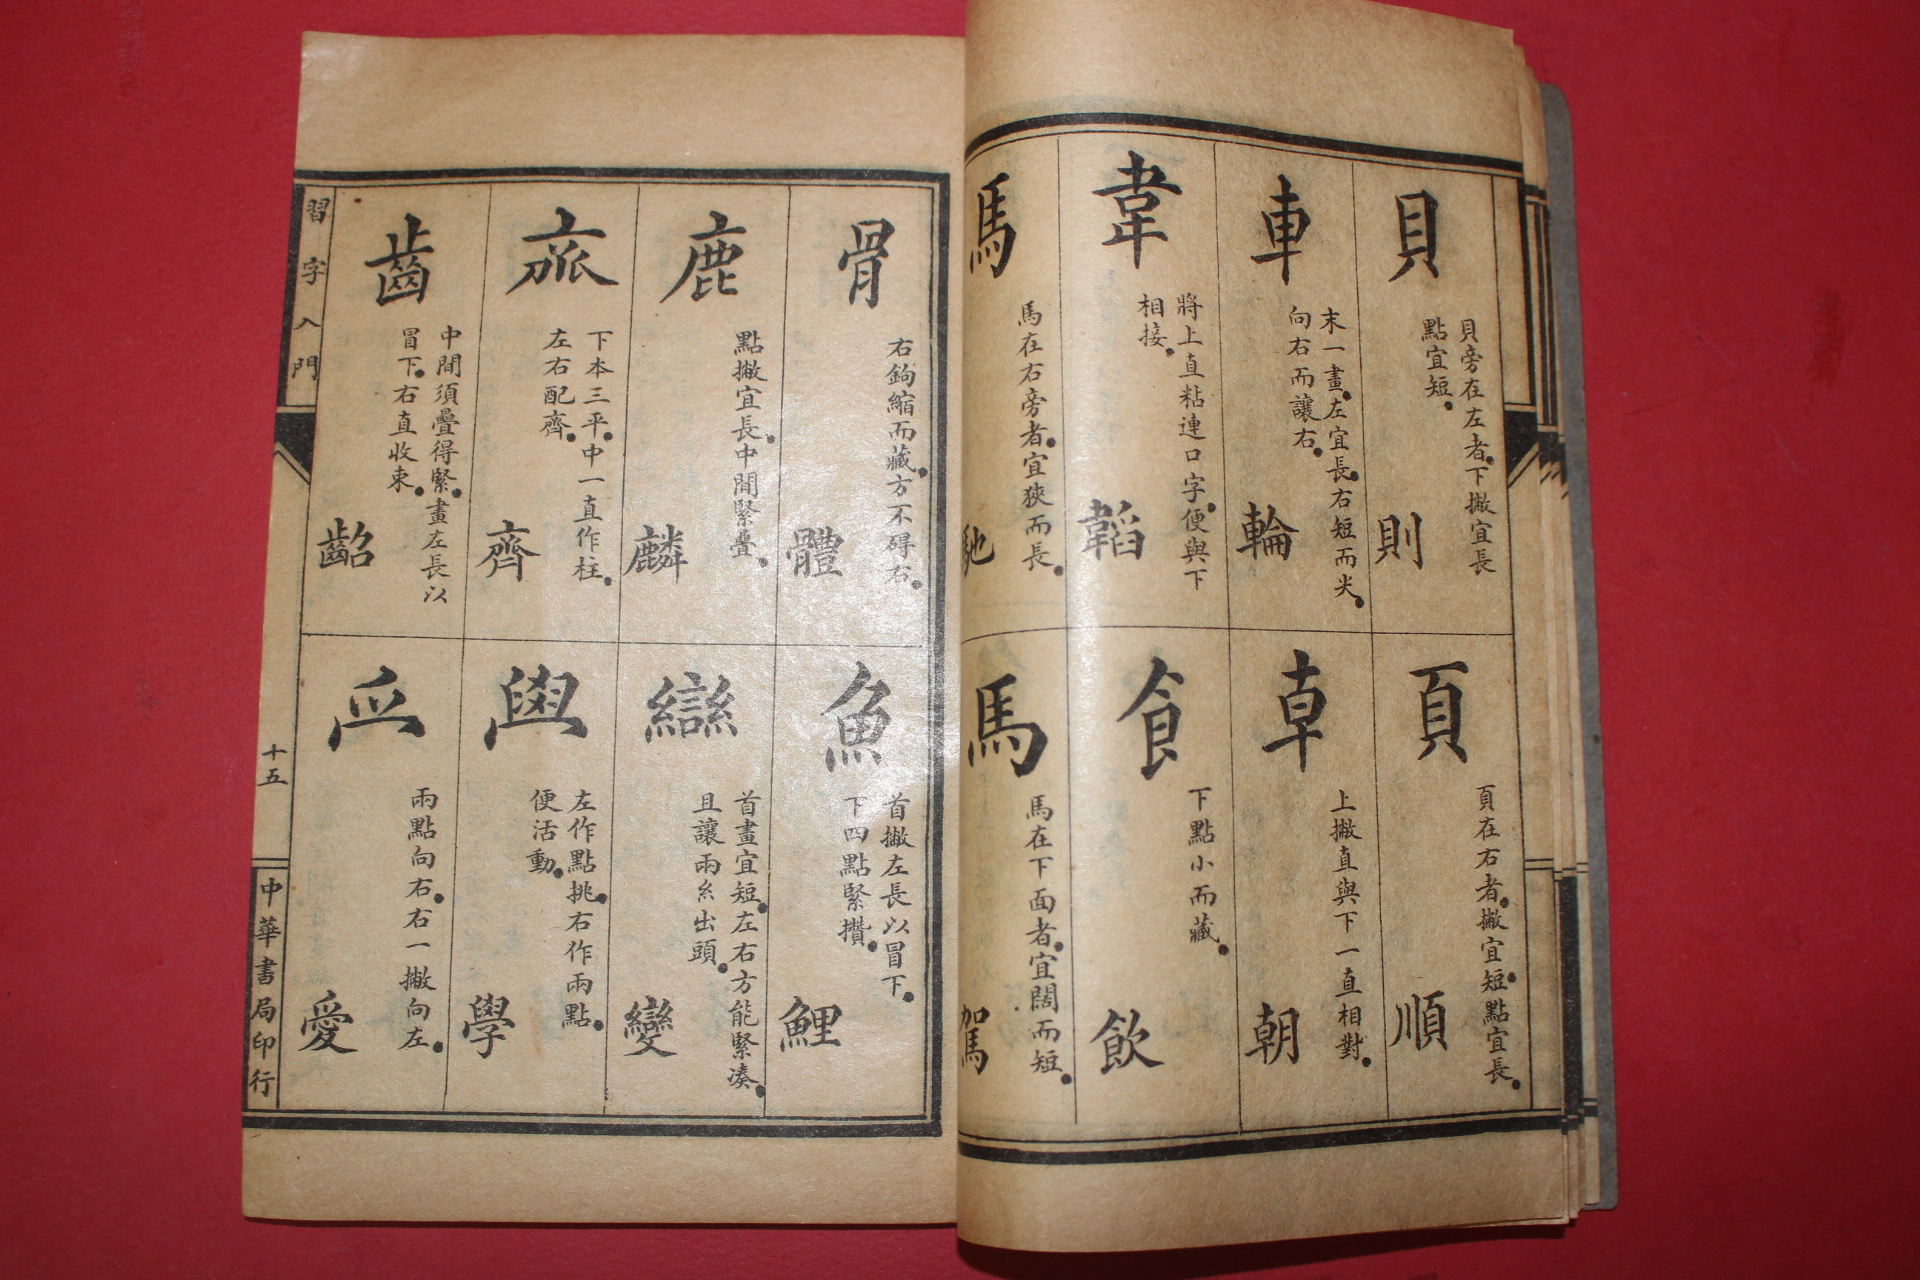 貝
貝旁在左者。下撇宜長
點宜短。
則
車
末一畫。左宜長。右短而尖。
向右而讓右。
輪
韋
將上直粘連口字。便與下
相接。
韜
馬
馬在右旁者。宜狹而長。
馳
頁
頁在右者。撇宜短。點宜長。
順
上撇直與下一直相對。
朝
食
下點小而藏。
飲
馬
馬在下面者。宜闊而短。
駕
骨
右鉤縮而藏。方不碍右。
體
鹿
點撇宜長。中間緊疊。
麟
下本三平。中一直作柱。
左右配齊。
齊
齒
中間須疊得緊。畫左長以
冒下。右直收束。
齠
魚
首撇左長以冒下。
下四點緊攢。
鯉
䜌
首畫宜短。左右方能緊湊。
且讓兩糸出頭。
變
左作點挑。右作兩點。
便活動。
學
兩點向右。右一撇向左。
愛
習字入門
十五
中華書局印行